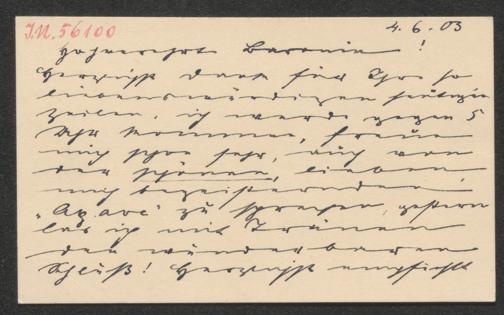 I.N. 56100
4. 6. 03
Hochverehrte Baronin!
Herzlichst Dank für Ihre so
liebenswürdigen heutigen
Zeilen, ich werde gegen 5
Uhr kommen, freue
mich schon sehr, auch von
der schönen, lieben,
mich begeisternden
"Agave" zu sprechen, gestern
las ich mit Tränen
den wunderbaren
Schluß! Herzlichst empfiehlt